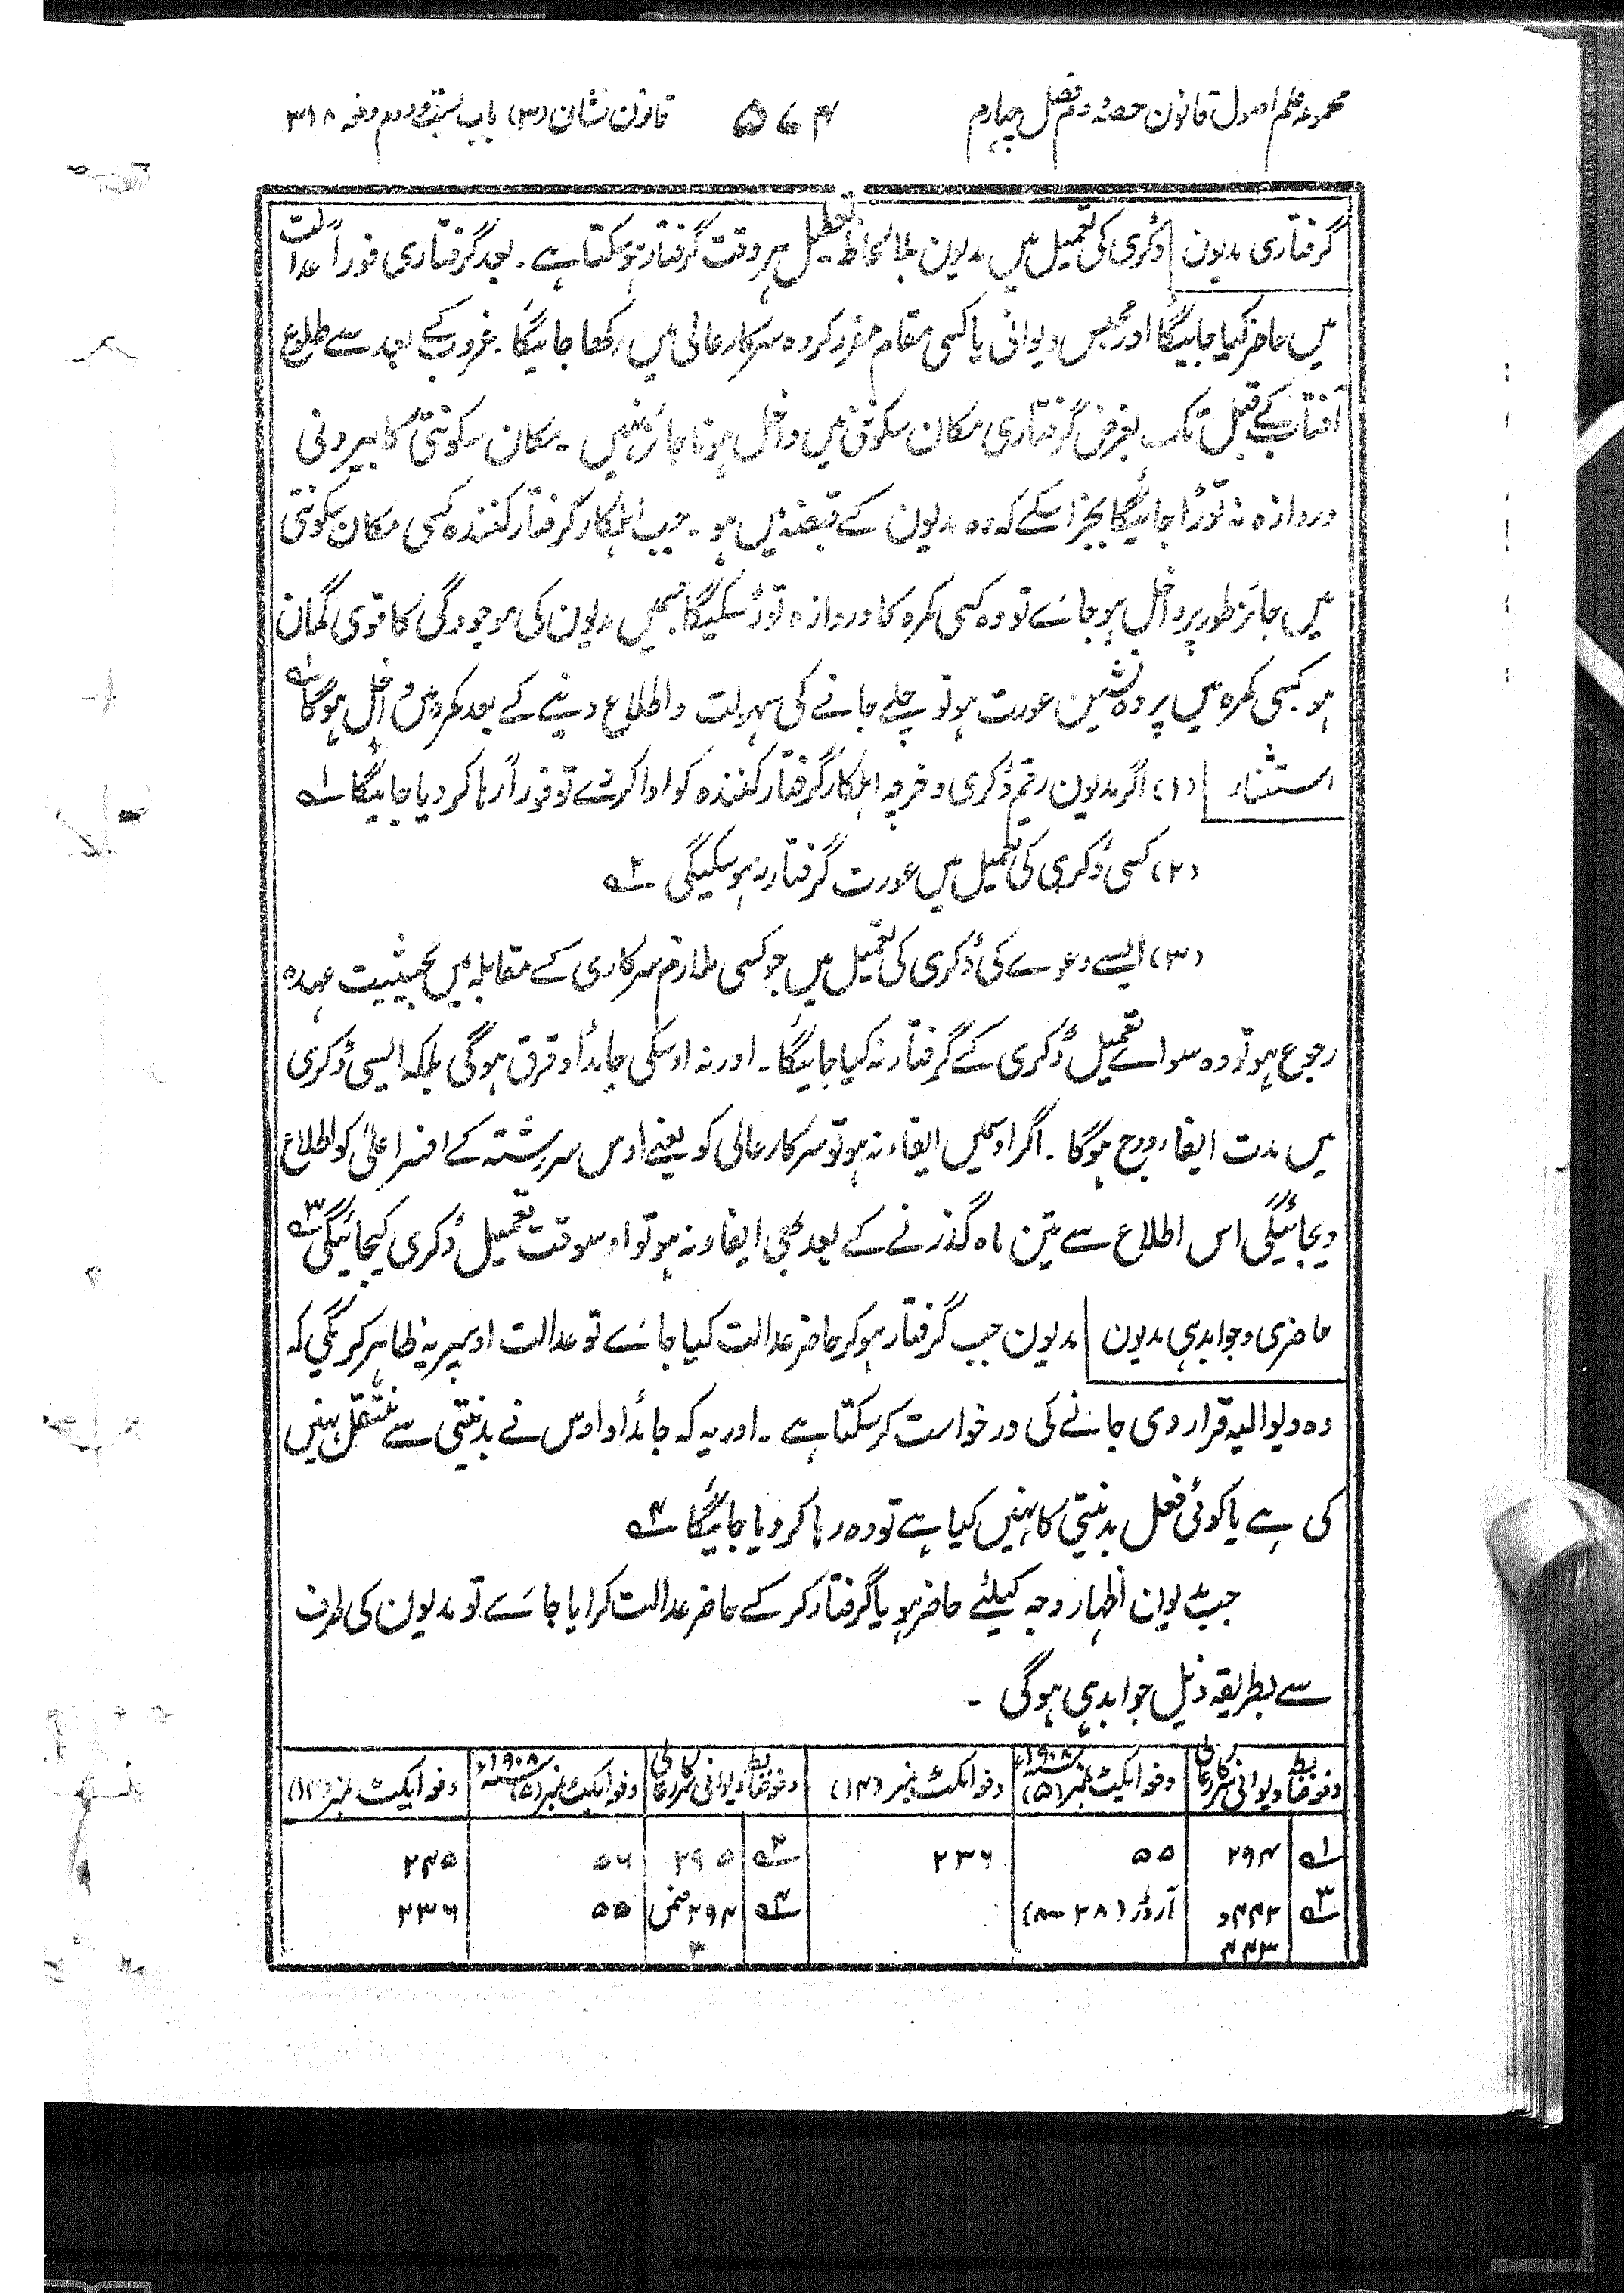 مجموعہ علم اصول قانون حصہ دوم فصل چہارم ۵۶۴ قانون نشان (۳) باب بست و دوم دفعہ ۳۱۸
گرفتاری مدیون ڈگری کی تعمیل میں مدیون بلا لحاظ تعطیل ہر وقت گرفتار ہوسکتا ہے ۔ بعد گرفتاری فوراً عدالت
میں حاضر کیا جائیگا اور محبس دیوانی یا کسی مقام مقرر کردہ سرکار عالی میں رکھا جائیگا ۔ غروب کے بعد سے طلوع
آفتاب کے قبل تک بغرض گرفتاری مکان سکونتی میں داخل ہونا جائز نہیں ۔ مکان سکونتی کا بیرونی
دروازہ نہ توڑا جائیگا بجز اسکے کہ وہ مدیون کے قبضہ میں ہو ۔ جب اہلکار گرفتار کنندہ کسی مکان سکونتی
میں جائز طور پر داخل ہو جائے تو وہ کسی کمرہ کا دروازہ توڑ سکیگا جسمیں مدیون کی موجودگی کا قوی گمان
ہو کسی کمرہ میں پردہ نشین عورت ہو تو چلے جانے کی سہولت و اطلاع دینے کے بعد کمرہ میں داخل ہوگا ۱؎
استثناء (۱) اگر مدیون رقم ڈگری و خرچہ اہلکار گرفتار کنندہ کو ادا کردے تو فوراً رہا کر دیا جائیگا ۱؎
(۲) کسی ڈگری کی تعمیل میں عورت گرفتار نہ ہوسکیگی ۲؎
(۳) ایسے دعوے کی ڈگری کی تعمیل میں جو کسی ملازم سرکاری کے مقابلہ میں بحیثیت عہدہ
رجوع ہو تو وہ سوائے تعمیل ڈگری کے گرفتار نہ کیا جائیگا ۔ اور نہ اوسکی جائداد قرق ہوگی بلکہ ایسی ڈگری
میں مدت ایفاء درج ہوگا ۔ اگر اوسمیں ایفاء نہ ہو تو سرکار عالی کو یعنے اوس سررشتہ کے افسر اعلیٰ کو اطلاع
دیجائیگی اس اطلاع سے تین ماہ گذرنے کے بعد بھی ایفاء نہ ہو تو اوسوقت تعمیل ڈگری کیجائیگی ۳؎
حاضری و جوابدہی مدیون مدیون جب گرفتار ہوکر حاضر عدالت کیا جائے تو عدالت اوسپر یہ ظاہر کریگی کہ
وہ دیوالیہ قرار دی جانے کی درخواست کرسکتا ہے ۔ اور یہ کہ جائداد اوس نے بدنیتی سے منتقل نہیں
کی ہے یا کوئی فعل بدنیتی کا نہیں کیا ہے تو وہ رہا کردیا جائیگا ۴؎
جب مدیون اظہار وجہ کیلئے حاضر ہو یا گرفتار کر کے حاضر عدالت کرایا جائے تو مدیون کی طرف
سے بطریقہ ذیل جوابدہی ہوگی ۔
دفعہ ضابطہ دیوانی سرکار عالی دفعہ ایکٹ نمبر (۵) ۱۹۰۸ء دفعہ ایکٹ نمبر (۱۴) دفعہ ضابطہ دیوانی سرکار عالی دفعہ ایکٹ نمبر (۵) ۱۹۰۸ء دفعہ ایکٹ نمبر (۱۴)
۱؎ ۲۹۴ ۵۵ ۲۳۶ ۲؎ ۲۹۵ ۵۶ ۲۴۵
۳؎ ۴۴۲ و آرڈر (۲۸ - ۸) ۴؎ ۲۹۴ ضمن ۵۵ ۳۳۶
۴۴۳ ۳